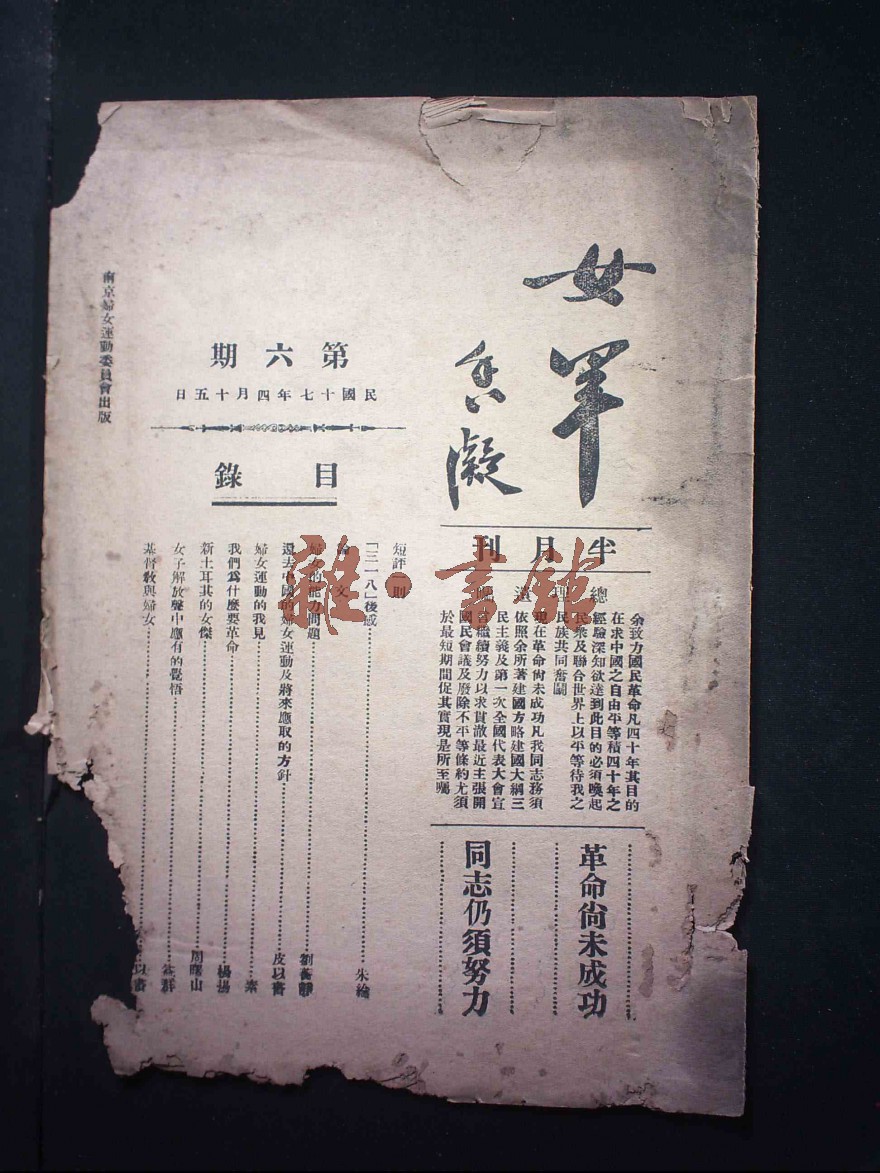 女軍
香凝
半月刊
總理遺囑
余致力國民革命凡四十年其目的
在求中國之自由平等積四十年之
經驗深知欲達到此目的必須喚起
民衆及聯合世界上以平等待我之
民族共同奮鬭
現在革命尚未成功凡我同志務須
依照余所著建國方略建國大綱三
民主義及第一次全國代表大會宣
言繼續努力以求貫澈最近主張開
國民會議及廢除不平等條約尤須
於最短期間促其實現是所至囑
革命尚未成功
同志仍須努力
第六期
民國十七年四月十五日
目錄
短評一則
「三一八」後感 朱綸
論文
婦女的能力問題 劉蘅靜
過去中國的婦女運動及將來應取的方針 皮以書
婦女運動的我見 素
我們爲什麼要革命 楊揚
新土耳其的女傑 周曙山
女子解放聲中應有的覺悟 群
基督敎與婦女 以書
南京婦女運動委員會出版
雜·書館